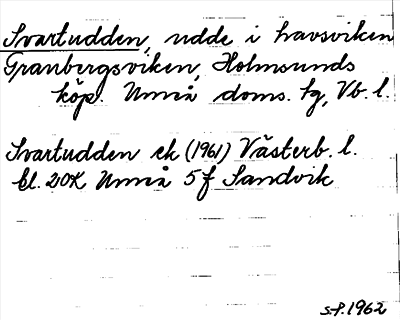 Svartudden, udde i havsviken
Granbergsviken, Holmsunds
köp. Umeå doms. tg, Vb. l.
Svartudden ek (1961) Västerb. l.
bl. 20K Umeå 5 f Sandvik
S.P. 1962